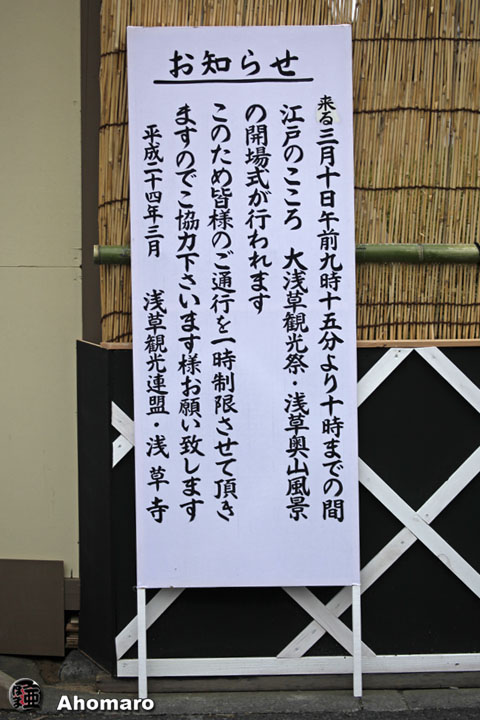 お知らせ
来る三月十日午前九時十五分より十時までの間
江戸のこころ 大浅草観光祭・浅草奥山風景
の開場式が行われます
このため皆様のご通行を一時制限させて頂き
ますのでご協力下さいます様お願い致します
平成二十四年三月 浅草観光連盟・浅草寺
Ahomaro